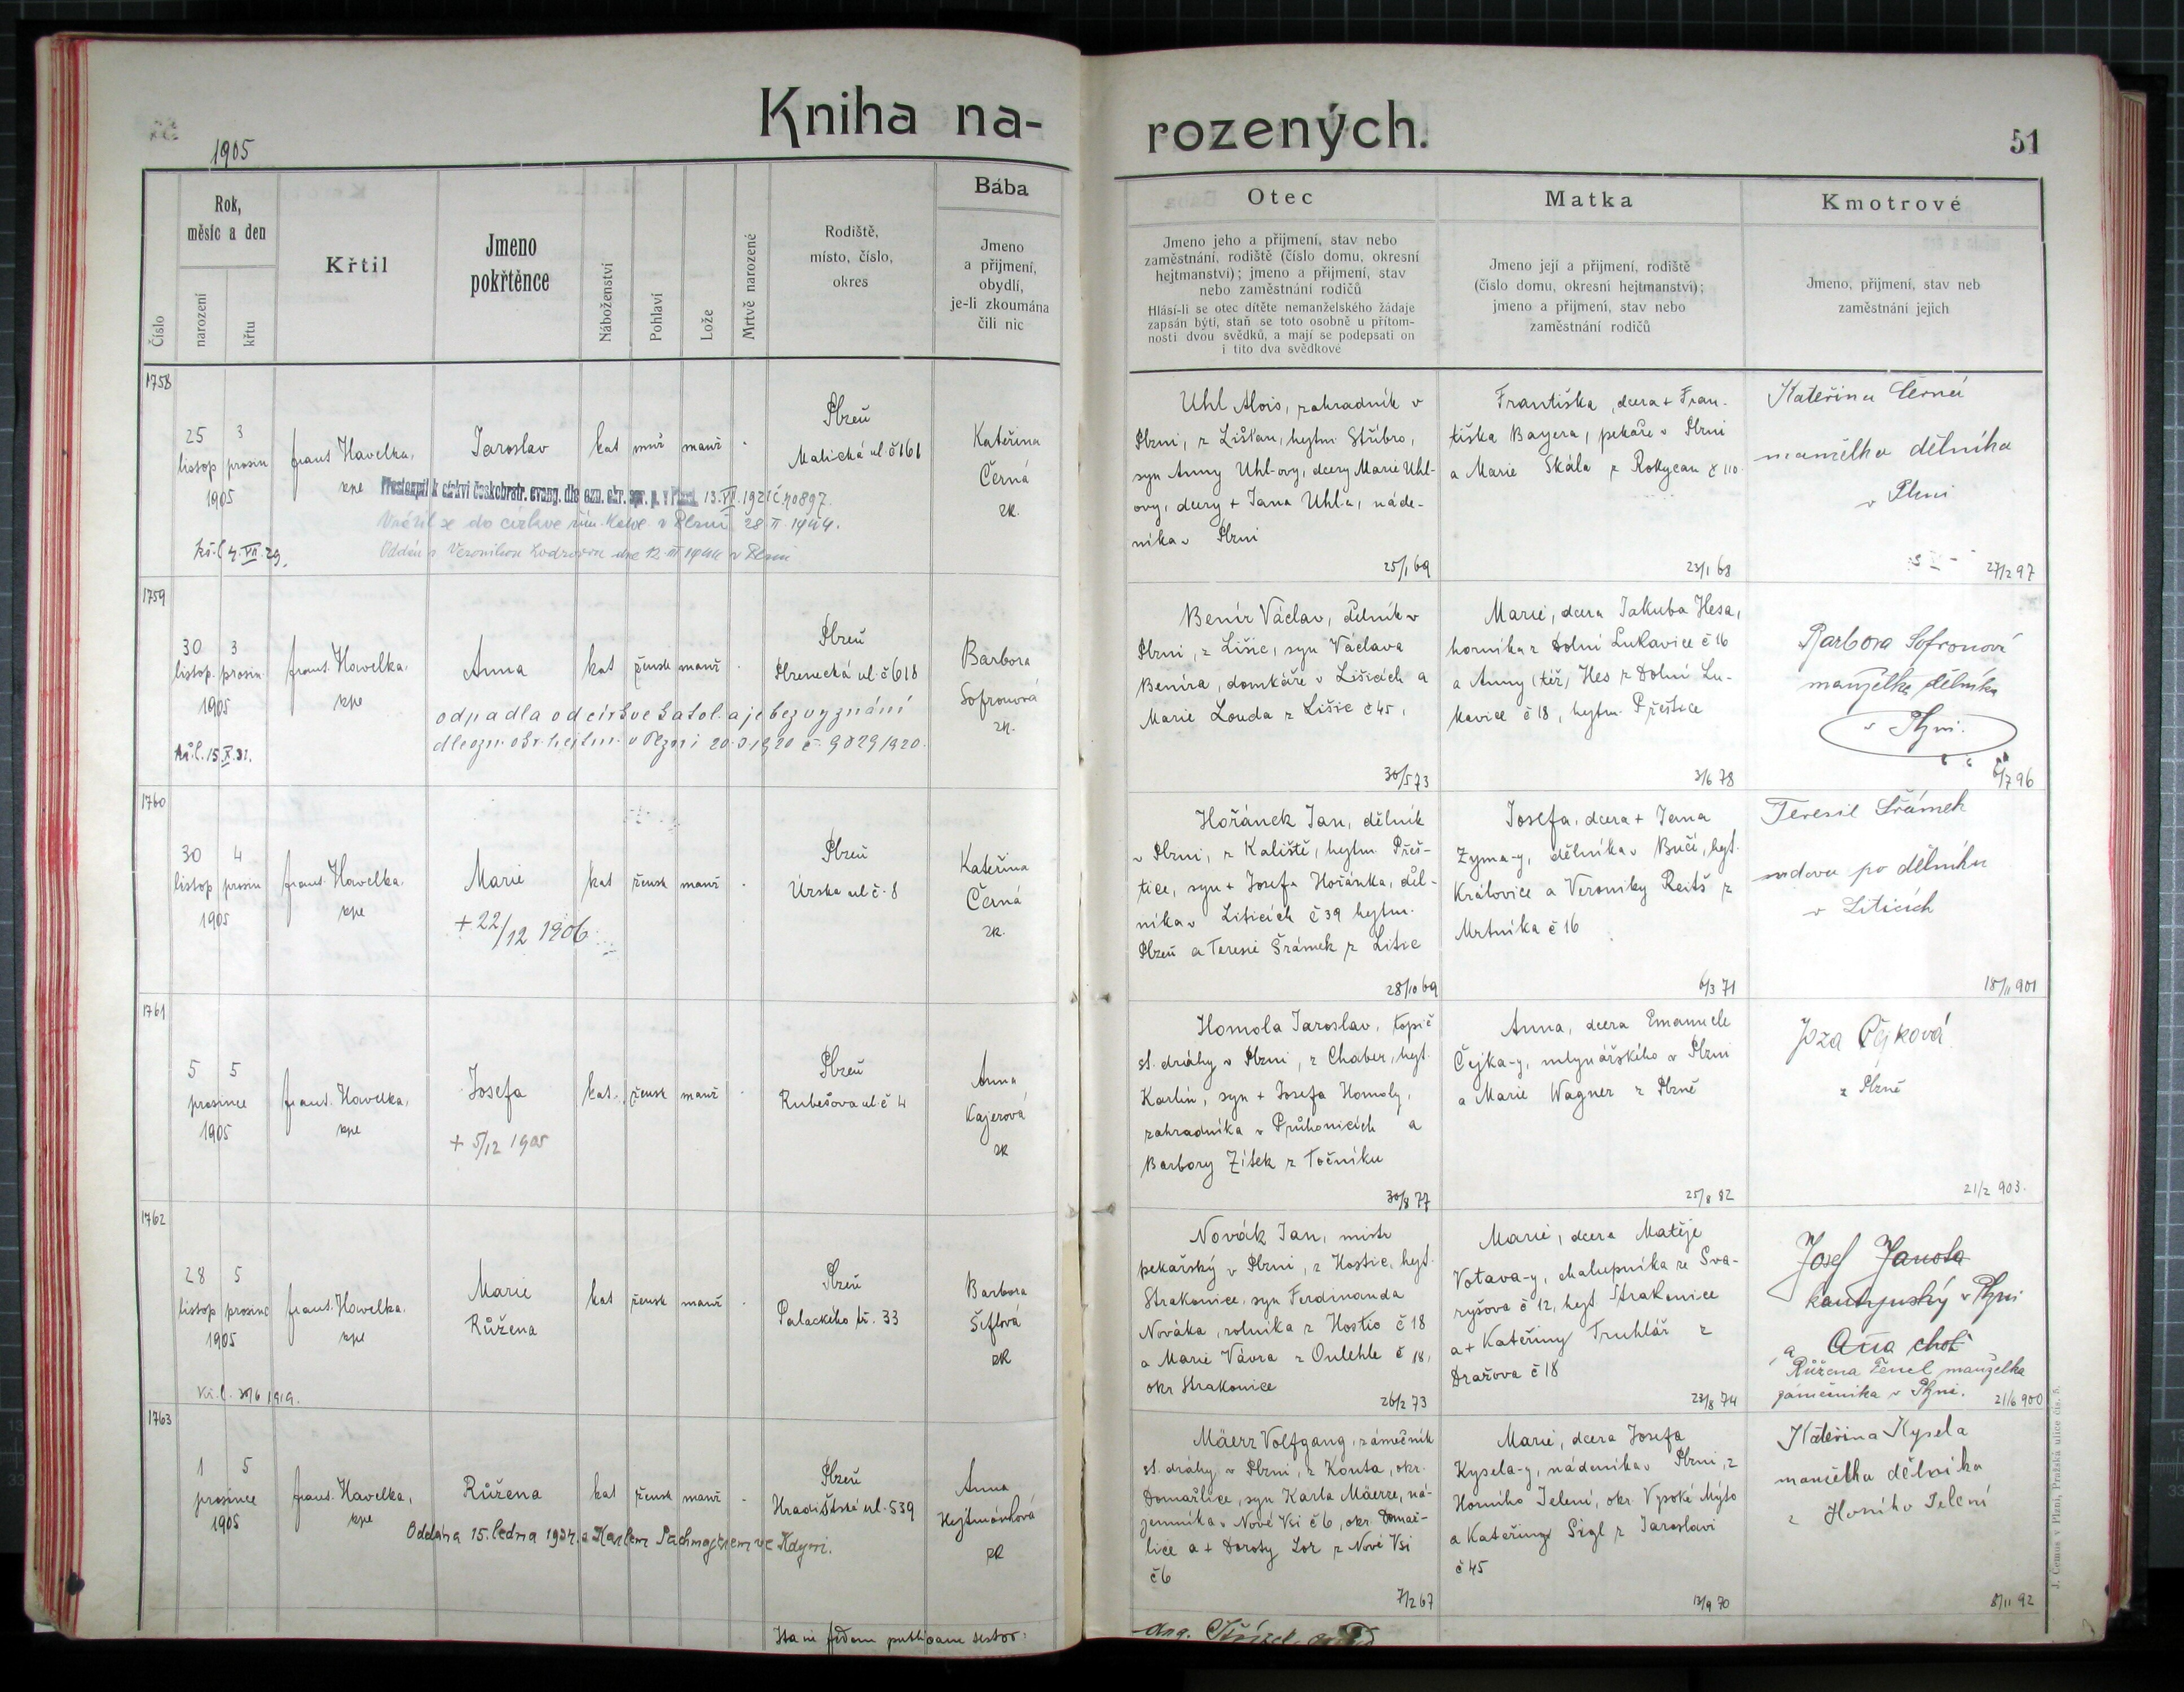 Kniha na-
rozených.
51
1905
Číslo
Rok,
měsíc a den
narození
křtu
Křtil
Jmeno
pokřtěnce
Náboženství
Pohlaví
Lože
Mrtvě narozené
Rodiště,
místo, číslo,
okres
Bába
Jmeno
a přijmení,
obydlí,
je-li zkoumána
čili nic
Otec
Jmeno jeho a přijmení, stav nebo
zaměstnání, rodiště (číslo domu, okresní
hejtmanství); jmeno a přijmení, stav
nebo zaměstnání rodičů
Hlásí-li se otec dítěte nemanželského žádaje
zapsán býti, staň se toto osobně u přítom-
nosti dvou svědků, a mají se podepsati on
i tito dva svědkové
Matka
Jmeno její a přijmení, rodiště
(číslo domu, okresní hejtmanství);
jmeno a přijmení, stav nebo
zaměstnání rodičů
Kmotrové
Jmeno, přijmení, stav neb
zaměstnání jejich
1758
25 3
listop prosin
1905
frant. Havelka,
kpe
Jaroslav
kat muž manž
Plzeň
Malická ul. č 161
Kateřina
Černá
zk.
Přestoupil k církvi českobratr. evang. dle ozn. okr. spr. p. v Plzni 13.VI.1921 č. 70897.
Vrátil se do církve řím. katol. v Plzni 28 II. 1944.
Oddán s Veronikou dne 12. III 1944 v Plzni
kř. l. 4.VII.29.
Uhl Alois, zahradník v
Plzni, z Lišťan, hejtm. Stříbro,
syn Anny Uhl-ovy, dcery Marie Uhl-
ovy, dcery + Jana Uhl-a, náde-
níka v Plzni
25/1 69
Františka, dcera + Fran-
tiška Bayera, pekaře v Plzni
a Marie Skála z Rokycan č 110
23/1 68
Kateřina Černá
manželka dělníka
v Plzni
27/2 97
1759
30 3
listop. prosin.
1905
frant. Havelka,
kpe
Anna
kat žensk manž
Plzeň
Plzenecká ul. č 618
Barbora
Sofronová
zk.
odpadla od církve katol. a je bez vyznání
dle ozn. okr. hejtm. v Plzni 20.9.1920 č. 9829/920.
kř. l. 15.X.31.
Benír Václav, dělník v
Plzni, z Lišic, syn Václava
Beníra, domkáře v Lišicích a
Marie Louda z Lišic č 45,
30/5 73
Marie, dcera Jakuba Hesa,
horníka z Dolní Lukavice č 16
a Anny (též) Hes z Dolní Lu-
kavice č 18, hejtm. Přeštice
3/6 78
Barbora Sofronová
manželka dělníka
v Plzni.
6/7 96
1760
30 4
listop prosin
1905
frant. Havelka,
kpe
Marie
+ 22/12 1906
kat žensk manž
Plzeň
Úzká ul č. 8
Kateřina
Černá
zk.
Hořánek Jan, dělník
v Plzni, z Kaliště, hejtm. Přeš-
tice, syn + Josefa Hořánka, děl-
níka v Liticích č 39 hejtm.
Plzeň a Teresie Šrámek z Litic
28/10 69
Josefa, dcera + Jana
Zyma-y, dělníka v Bučí, hejt.
Královice a Veroniky Reitš z
Mrtníka č 16
6/3 71
Teresie Šrámek
vdova po dělníku
v Liticích
18/11 901
1761
5 5
prosince
1905
frant. Havelka,
kpe
Josefa
+ 5/12 1905
kat. žensk manž
Plzeň
Rubešova ul. č 4
Anna
Kajerová
zk
Homola Jaroslav, topič
st. dráhy v Plzni, z Chaber, hejt.
Karlín, syn + Josefa Homoly,
zahradníka v Průhonicích a
Barbory Zítek z Točníku
30/8 77
Anna, dcera Emanuele
Čejka-y, mlynářského v Plzni
a Marie Wagner z Plzně
25/8 82
Joza Čejková
z Plzně
21/2 903.
1762
28 5
listop prosinc
1905
frant. Havelka,
kpe
Marie
Růžena
kat žensk manž
Plzeň
Palackého tř. 33
Barbora
Šiflová
zk
kř. l. 30/6 1919.
Novák Jan, mistr
pekařský v Plzni, z Hostic, hejt.
Strakonice, syn Ferdinanda
Nováka, rolníka z Hostic č 18
a Marie Vávra z Oulehle č 18,
okr Strakonice
26/2 73
Marie, dcera Matěje
Votava-y, chalupníka ze Sva-
ryšova č 12, hejt. Strakonice
a + Kateřiny Truhlář z
Dražova č 18
23/8 74
Josef Janota
v Plzni
a Ana choť
Růžena Fencl manželka
zámečníka v Plzni.
21/6 900
1763
1 5
prosince
1905
frant. Havelka,
kpe
Růžena
kat žensk manž
Plzeň
Hradišťská ul. 539
Anna
Hejtmánková
zk
Oddána 15. ledna 1934 s Karlem Pachmajerem ve Kdyni.
Mäerz Volfgang, zámečník
st. dráhy v Plzni, z Kouta, okr.
Domažlice, syn Karla Mäerze, ná-
jemníka v Nové Vsi č 6, okr. Domaž-
lice a + Doroty Lor z Nové Vsi
č 6
7/2 67
Marie, dcera Josefa
Kysela-y, nádeníka v Plzni, z
Horního Jelení, okr. Vysoké Mýto
a Kateřiny Sigl z Jaroslavi
č 45
13/9 70
Kateřina Kysela
manželka dělníka
z Horního Jelení
8/11 92
Ita in fidem publicam testor:
J. Čemus v Plzni, Pražská ulice čís. 5.